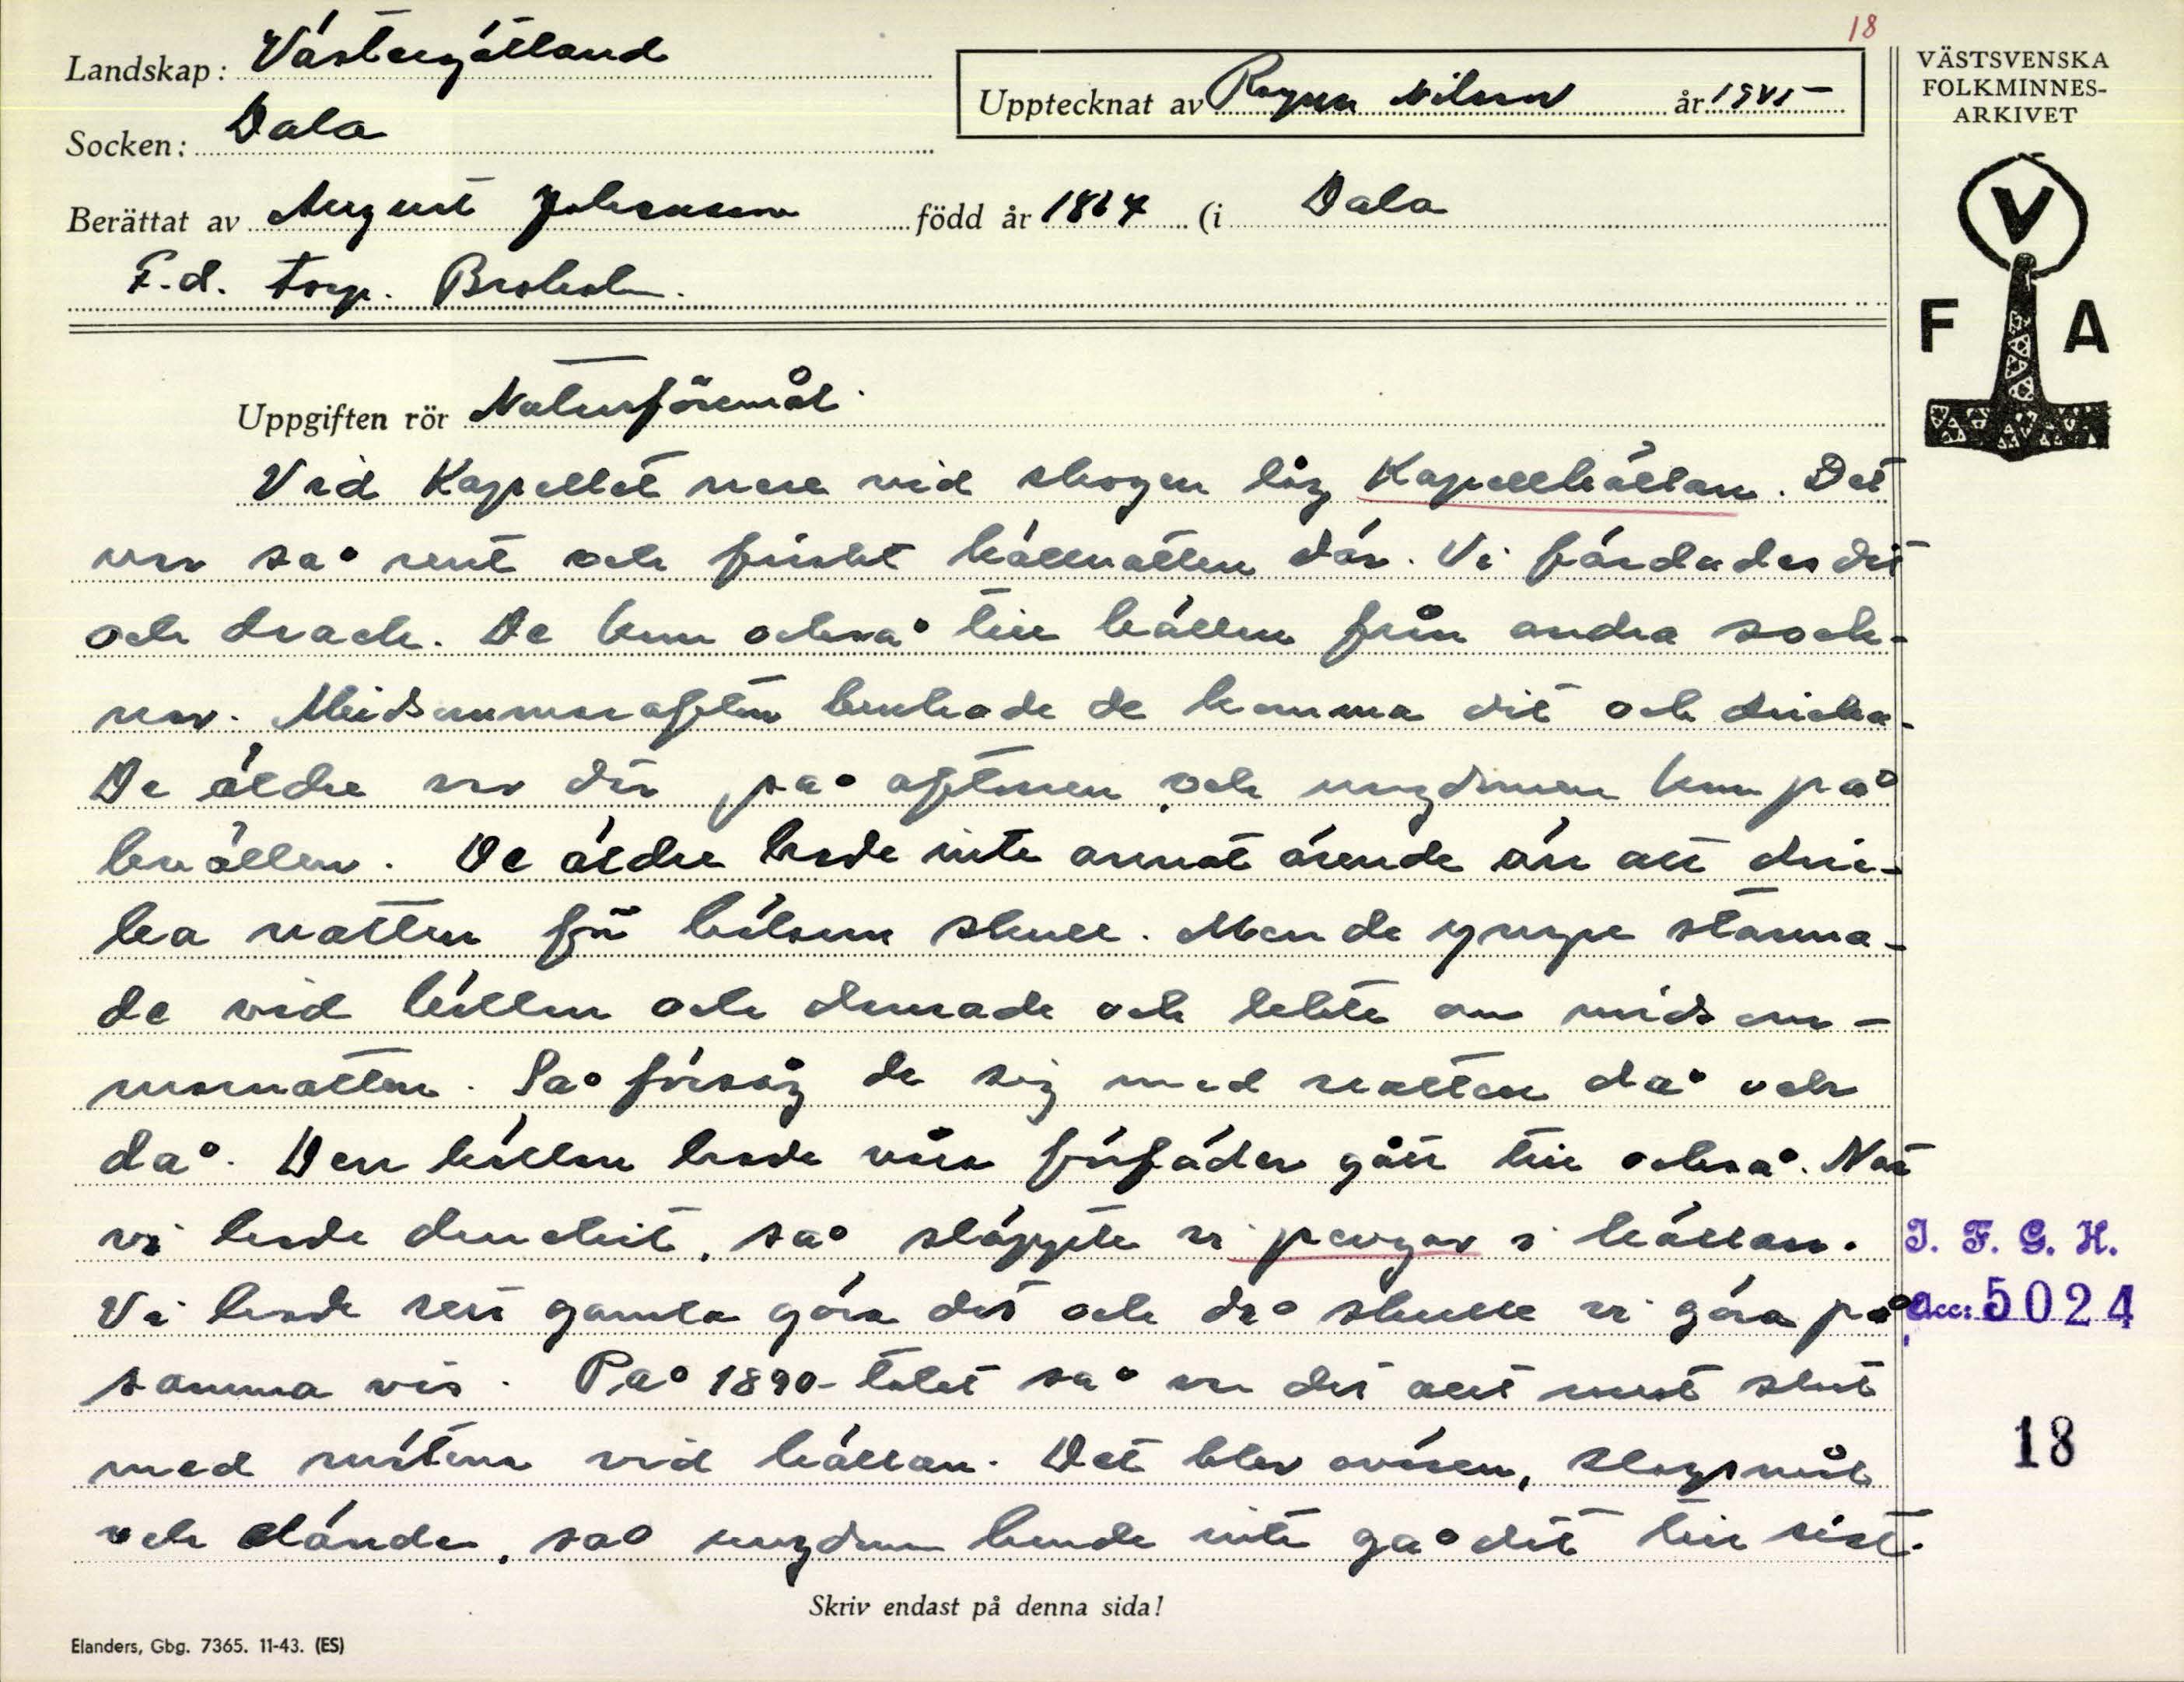 18
Landskap: Västergötland
Socken: Dala
Upptecknat av Ragnar Nilsson år 1945
VÄSTSVENSKA
FOLKMINNES-
ARKIVET
Berättat av August Johansson född år 1864 (i Dala
F.d. torp. Broholm.
V
F A
Uppgiften rör Naturföremål.
Vid Kapellet nere vid skogen låg Kapellkällan. Det
var så rent och friskt källvatten där. Vi färdades dit
och drack. De kom också till källan från andra sock-
nar. Midsommarafton brukade de komma dit och dricka.
De äldre var där på aftonen och ungdomen kom på
kvällen. De äldre hade inte annat ärende än att dric-
ka vatten för hälsans skull. Men de yngre stanna-
de vid källan och dansade och lekte om midsom-
marnatten. Så försåg de sig med vatten då och
då. Den källan hade våra förfäder gått till också. När
vi hade druckit, så släppte vi pengar i källan.
Vi hade sett gamla göra det och då skulle vi göra på
samma vis. På 1890-talet så var det allt mest slut
med mötena vid källan. Det blev oväsen, slagsmål
och elände, så ungdom kunde inte gå dit till sist.
I. F. G. H.
Acc: 5024
18
Skriv endast på denna sida!
Elanders, Gbg. 7365. 11-43. (ES)